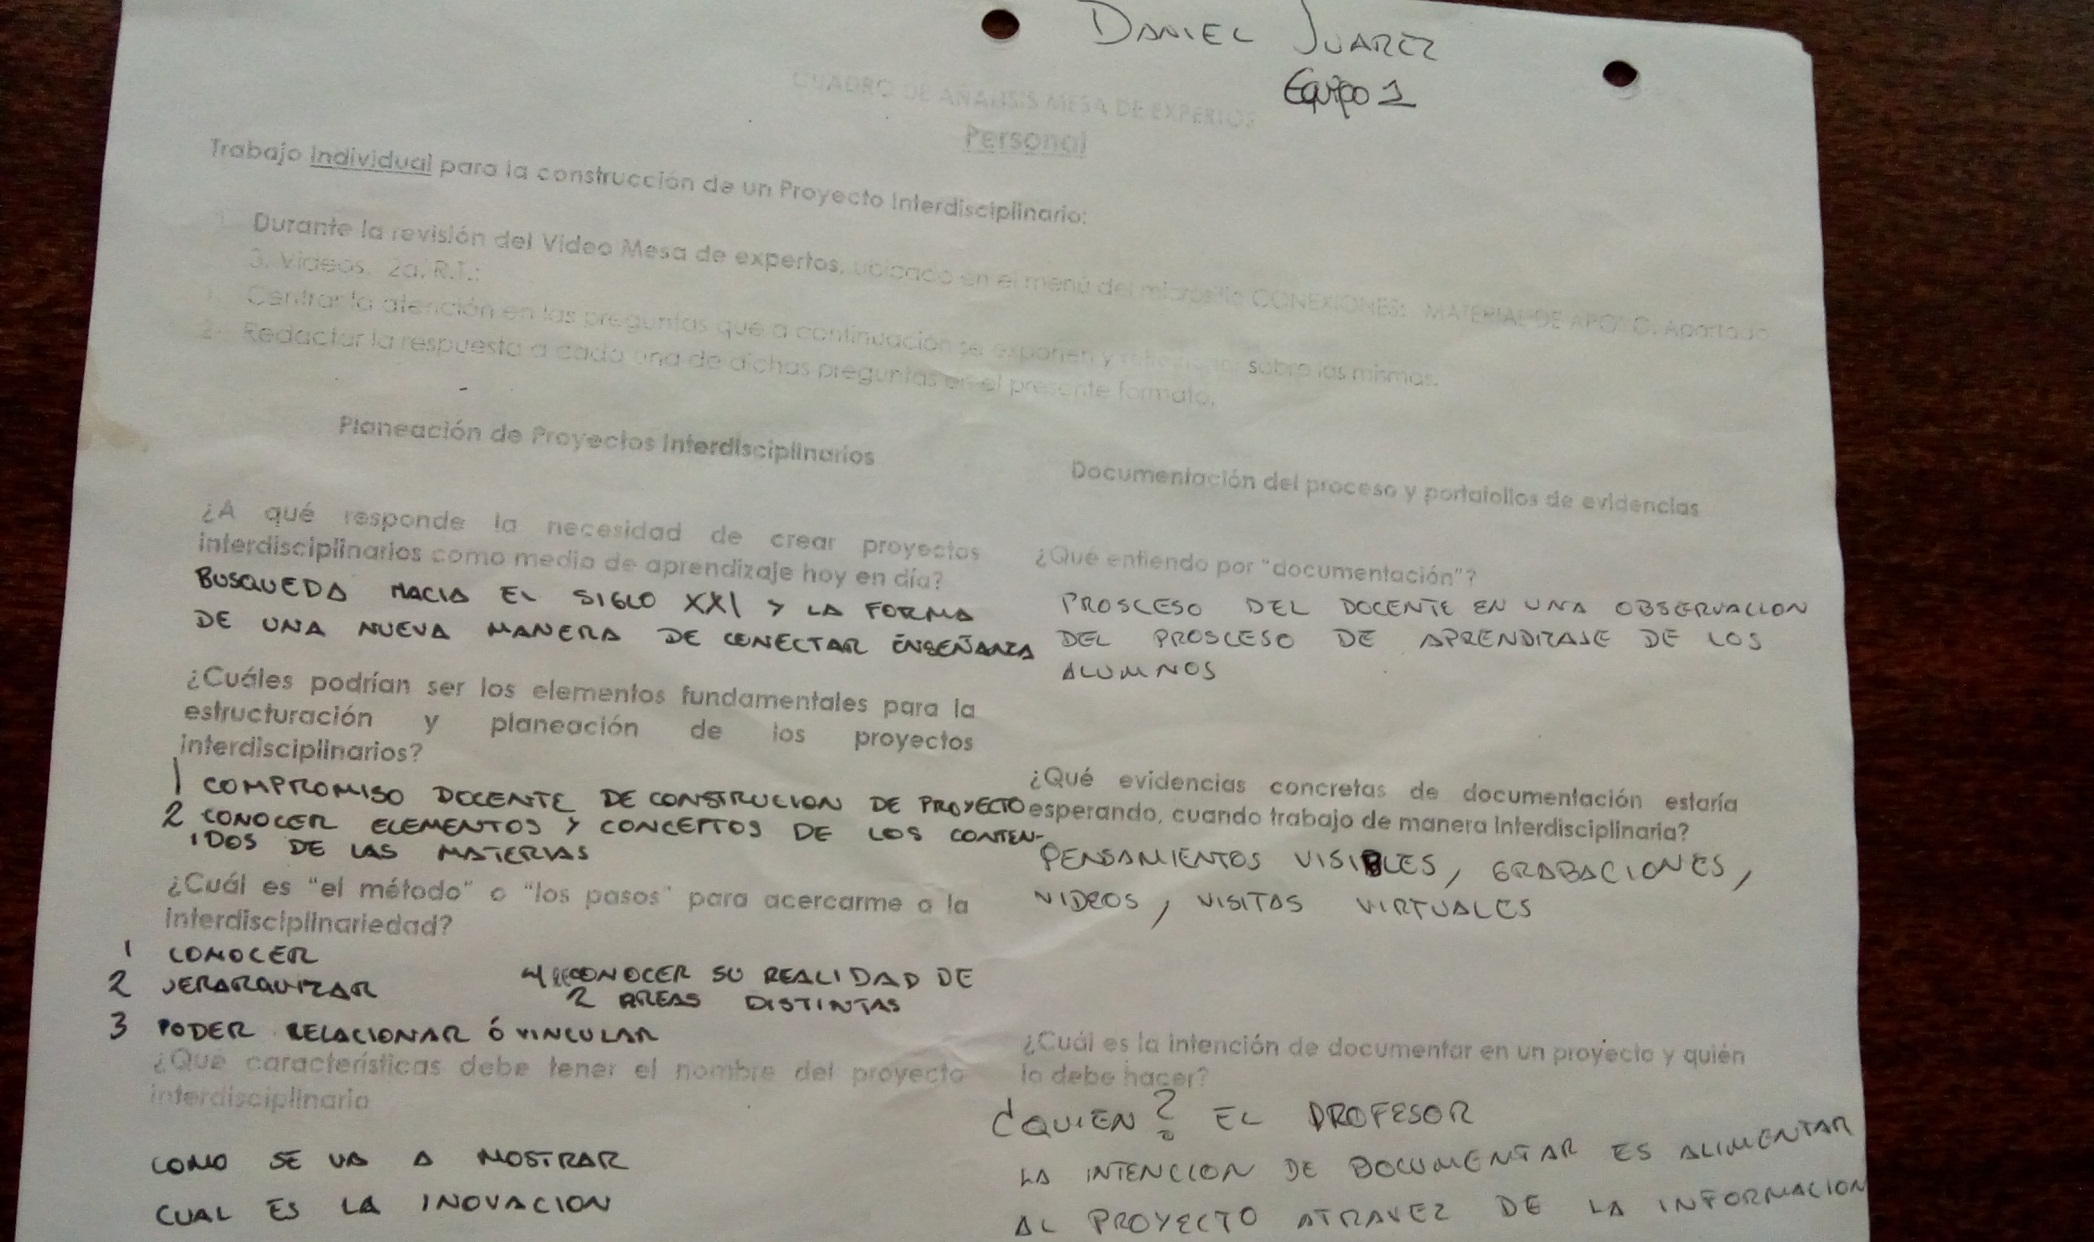 DANIEL JUAREZ
Equipo 1
CUADRO DE ANALISIS MESA DE EXPERTOS
Personal
Trabajo Individual para la construcción de un Proyecto Interdisciplinario:
Durante la revisión del Video Mesa de expertos, ubicado en el menú del micrositio CONEXIONES: MATERIAL DE APOYO. Apartado
3. Videos. 2a. R.T.:
1. Centrar la atención en las preguntas que a continuación se exponen y sobre las mismas.
2. Redactar la respuesta a cada una de dichas preguntas en el presente formato.
Planeación de Proyectos Interdisciplinarios
¿A qué responde la necesidad de crear proyectos
interdisciplinarios como medio de aprendizaje hoy en día?
BUSQUEDA HACIA EL SIGLO XXI Y LA FORMA
DE UNA NUEVA MANERA DE CONECTAR ENSEÑANZA
¿Cuáles podrían ser los elementos fundamentales para la
estructuración y planeación de los proyectos
interdisciplinarios?
1 COMPROMISO DOCENTE DE CONSTRUCION DE PROYECTO
2 CONOCER ELEMENTOS Y CONCEPTOS DE LOS CONTEN-
IDOS DE LAS MATERIAS
¿Cuál es "el método" o "los pasos" para acercarme a la
interdisciplinariedad?
1 CONOCER
2 JERARQUIZAR
3 PODER RELACIONAR Ó VINCULAR
4 RECONOCER SU REALIDAD DE
2 AREAS DISTINTAS
¿Que características debe tener el nombre del proyecto
interdisciplinario
COMO SE VA A MOSTRAR
CUAL ES LA INOVACION
Documentación del proceso y portafolios de evidencias
¿Qué entiendo por "documentación"?
PROSCESO DEL DOCENTE EN UNA OBSERVACION
DEL PROSCESO DE APRENDIZAJE DE LOS
ALUMNOS
¿Qué evidencias concretas de documentación estaría
esperando, cuando trabajo de manera interdisciplinaria?
PENSAMIENTOS VISIBLES, GRABACIONES,
VIDEOS, VISITAS VIRTUALES
¿Cuál es la intención de documentar en un proyecto y quién
lo debe hacer?
¿QUIEN? EL PROFESOR
LA INTENCION DE DOCUMENTAR ES ALIMENTAR
AL PROYECTO ATRAVEZ DE LA INFORMACION